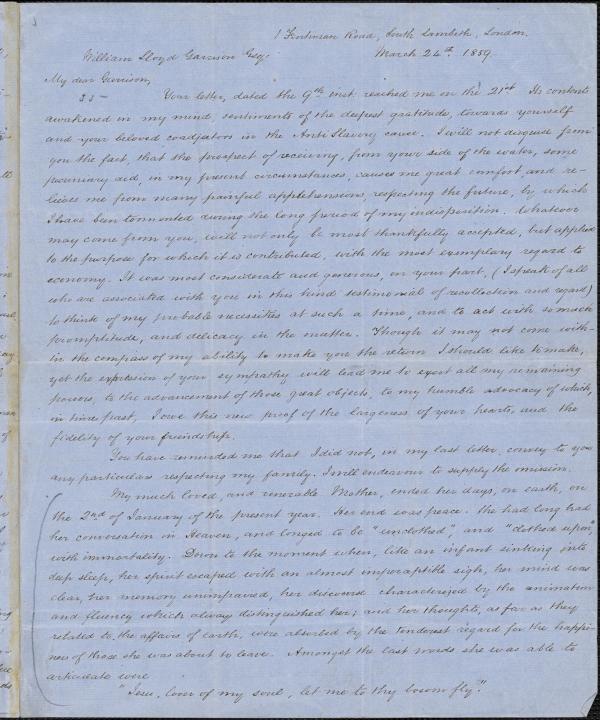 1 Fentiman Road, South Lambeth, London.
William Lloyd Garrison Esq: March 24th. 1859.
My dear Garrison,
33— Your letter, dated the 9th inst. reached me on the 21st. Its contents
awakened in my mind, sentiments of the deepest gratitude, towards yourself
and your beloved coadjutors in the Anti Slavery cause. I will not disguise from
you the fact, that the prospect of receiving, from your side of the water, some
pecuniary aid, in my present circumstances, causes me great comfort, and re-
lieves me from many painful apprehensions, respecting the future, by which
I have been tormented during the long period of my indisposition. Whatever
may come from you, will not only be most thankfully accepted, but applied
to the purpose for which it is contributed, with the most exemplary regard to
economy. It was most considerate and generous, on your part, (I speak of all
who are associated with you in this kind testimonial of recollection and regard)
to think of my probable necessities at such a time, and to act with so much
promptitude, and delicacy in the matter. Though it may not come with-
in the compass of my ability to make you the return I should like to make,
yet the expression of your sympathy will lead me to exert all my remaining
powers, to the advancement of those great objects, to my humble advocacy of which,
in time past, I owe this new proof of the largeness of your hearts, and the
fidelity of your friendship.
You have reminded me that I did not, in my last letter, convey to you
any particulars respecting my family. I will endeavour to supply the omission.
My much loved, and venerable Mother, ended her days, on earth, on
the 2nd of January of the present year. Her end was peace. She had long had
her conversation in Heaven, and longed to be "unclothed", and "clothed upon"
with immortality. Down to the moment when, like an infant sinking into
deep sleep, her spirit escaped with an almost imperceptible sigh, her mind was
clear, her memory unimpaired, her discourse characterized by the animation
and fluency which always distinguished her; and her thoughts, as far as they
related to the affairs of earth, were absorbed by the tenderest regard for the happi-
ness of those she was about to leave. Amongst the last words she was able to
articulate were
"Jesu, lover of my soul, let me to thy bosom fly."